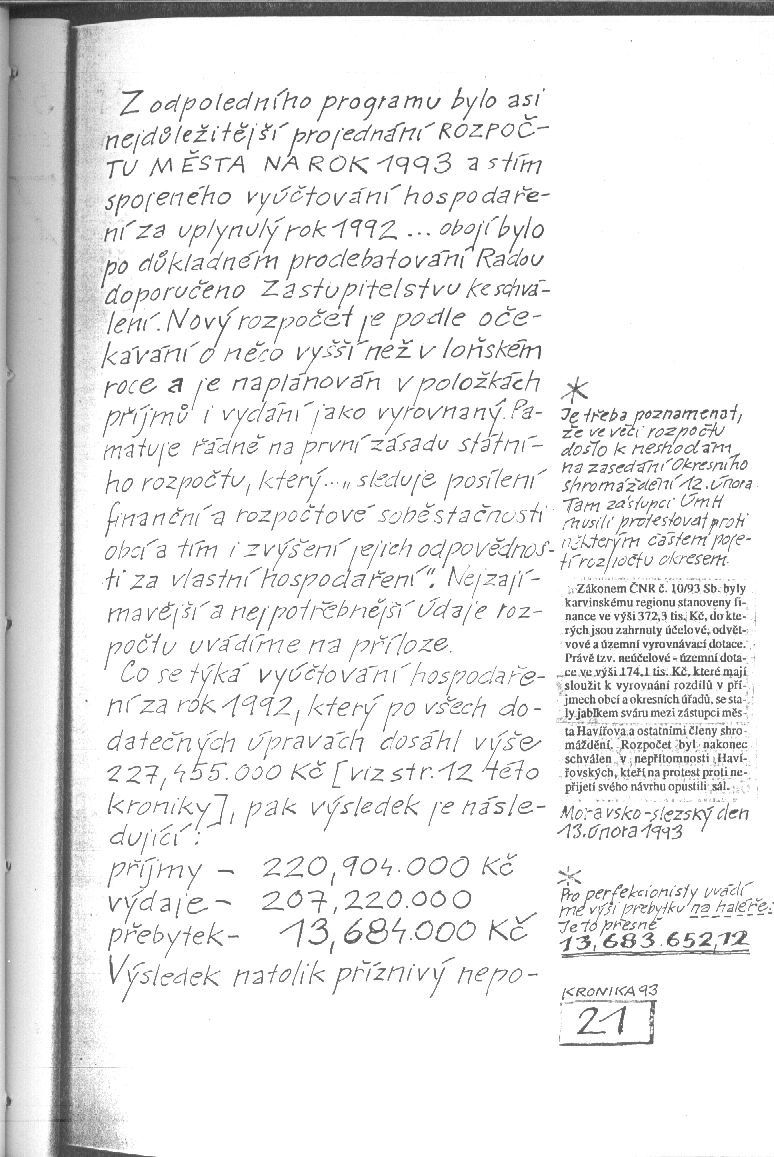 Z odpoledního programu bylo asi
nejdůležitější projednání ROZPOČ-
TU MĚSTA NA ROK 1993 a s tím
spojeného vyúčtování hospodaře-
ní za uplynulý rok 1992 ... obojí bylo
po důkladném prodebatování Radou
doporučeno Zastupitelstvu ke schvá-
lení. Nový rozpočet je podle oče-
kávání o něco vyšší než v loňském
roce a je naplánován v položkách
příjmů i vydání jako vyrovnaný. Pa-
matuje řádně na první zásadu státní-
ho rozpočtu, který... „sleduje posílení
finanční a rozpočtové soběstačnosti
obcí a tím i zvýšení jejich odpovědnos-
ti za vlastní hospodaření". Nejzají-
mavější a nejpotřebnější údaje roz-
počtu uvádíme na příloze.
Co se týká vyúčtování hospodaře-
ní za rok 1992, který po všech do-
datečných úpravách dosáhl výše
227,455.000 Kč [viz str. 12 této
kroniky], pak výsledek je násle-
dující:
příjmy - 220,904.000 Kč
výdaje - 207,220.000
přebytek - 13,684.000 Kč
Výsledek natolik příznivý nepo-
*
Je třeba poznamenat,
že ve věci rozpočtu
došlo k neshodám
na zasedání Okresního
shromáždění 12. února.
Tam zástupci ÚmH
musili protestovat proti
některým částem poje-
tí rozpočtu okresem.
Zákonem ČNR č. 10/93 Sb. byly
karvinskému regionu stanoveny fi-
nance ve výši 372,3 tis. Kč, do kte-
rých jsou zahrnuty účelové, odvět-
vové a územní vyrovnávací dotace.
Právě tzv. neúčelové - územní dota-
ce ve výši 174,1 tis. Kč, které mají
sloužit k vyrovnání rozdílů v pří-
jmech obcí a okresních úřadů, se sta-
ly jablkem sváru mezi zástupci měs-
ta Havířova a ostatními členy shro-
máždění. Rozpočet byl nakonec
schválen v nepřítomnosti Haví-
řovských, kteří na protest proti ne-
přijetí svého návrhu opustili sál.
Moravsko-slezský den
13. února 1993
*
Pro perfekcionisty uvádí
me výši přebytku na haléře:
Je to přesně
13,683.652,12
KRONIKA 93
21